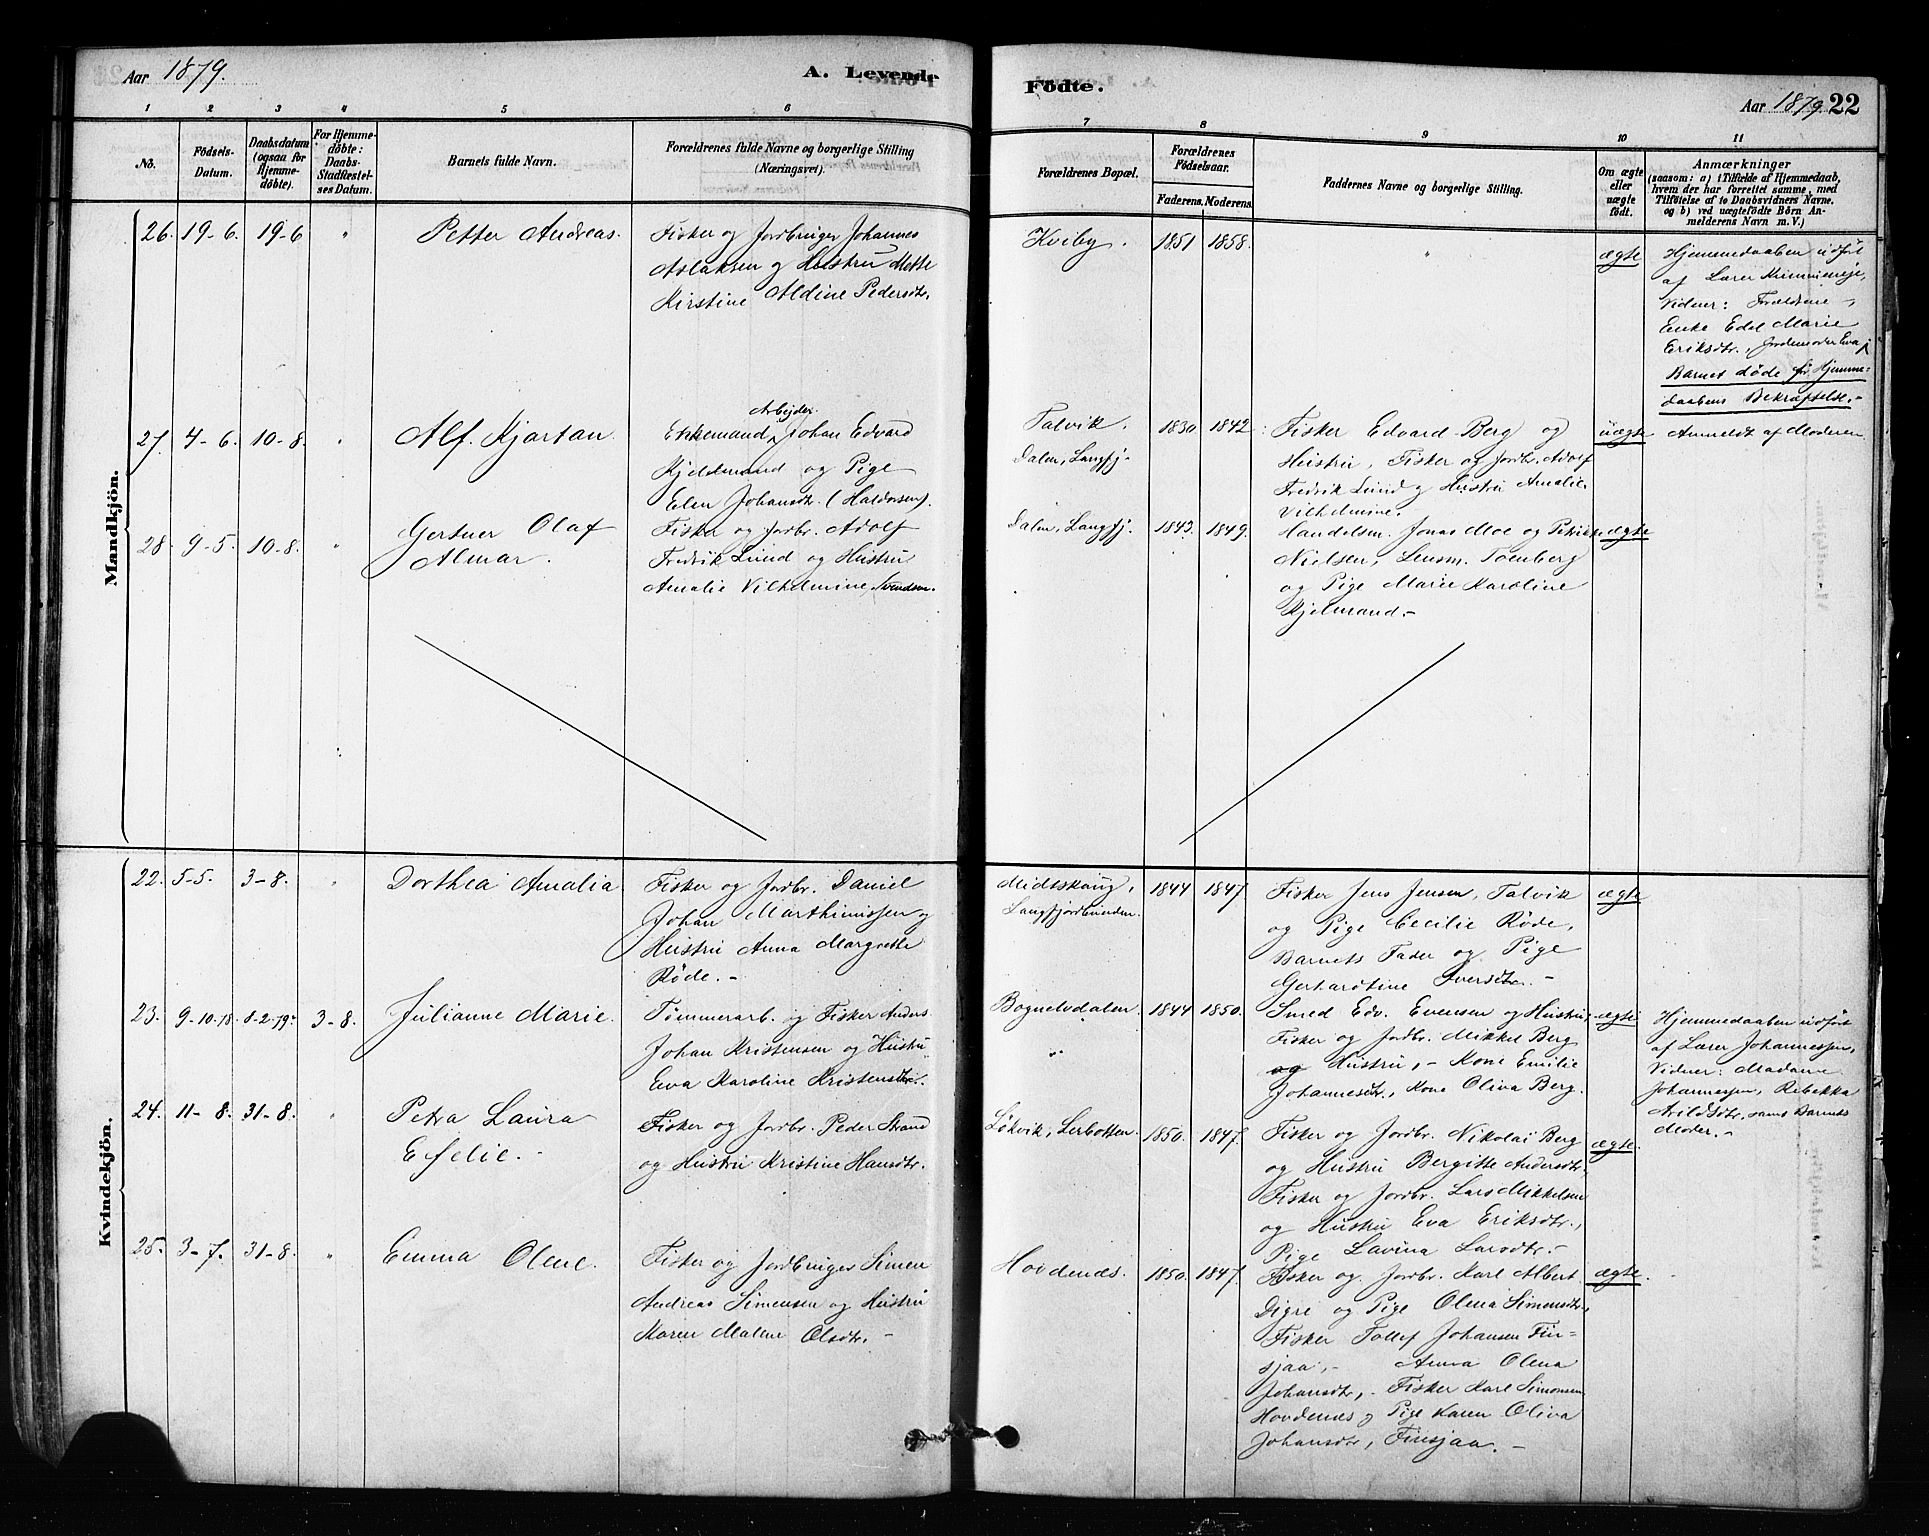 Aar 1879.
A. Levende
1 2 3 4 5 6
No.
Födsels-
Datum.
Daabsdatum
(ogsaa for
Hjemme-
döbte).
For Hjemme-
döbte:
Daabs-
Stadfæstel-
ses Datum.
Barnets fulde Navn.
Forældrenes fulde Navne og borgerlige Stilling
(Næringsvei).
Mandkjön.
26. 19-6. 19-6 " Petter Andreas.
Fisker og Jordbruger Johannes
Aslaksen og Hustru Mette
Kirstine Aldine Pedersdtr.
27. 4-6. 10-8. " Alf. Kjartan.
Arbejder.
Enkemand, Johan Edvard
Kjeldmand og Pige
Elen Johansdtr. (Haldorsen).
28. 9-5. 10-8. " Gertner Olaf
Almar.
Fisker og Jordbr. Adolf
Fredrik Lund og Hustru
Amalie Vilhelmine Svendsen.
Kvindekjön.
22. 5-5. 3-8. " Dorthea Amalia
Fisker og Jordbr. Daniel
Johan Marthinissen og
Hustru Anna Margrethe
Röde. -
23. 9-10-78. 8-2-79. 3-8. Julianne Marie.
Tømmerarb. og Fisker Anders
Johan Kristensen og Hustru
Eva Karoline Kristensdtr.
24. 11-8. 31-8. " Petra Laura
Efelie. -
Fisker og Jordbr. Peder Strand
og Hustru Kristine Hansdtr.
25. 3-7. 31-8. " Emma Olene.
Fisker og Jordbruger Simen
Andreas Simensen og Hustru
Karen Malene Olsdtr. -
Födte.
Aar 1879. 22
7 8 9 10 11
Forældrenes Bopæl.
Forældrenes
Födselsaar.
Faderens. Moderens.
Faddernes Navne og borgerlige Stilling.
Om ægte
eller
uægte
födt.
Anmærkninger
(saasom: a) i Tilfælde af Hjemmedaab,
hvem der har forrettet samme, med
Tilföielse af to Daabsvidners Navne.
og b) ved uægtefödte Börn An-
melderens Navn m. V.)
Kviby. 1851 1858. " ægte
Hjemmedaaben udført
af Lærer
Vidner: Forældrene -,
Enke Edel Marie
Eriksdtr., Jordemoder Eva
Barnet døde før Hjemme-
daabens Bekræftelse. -
Talvik.
Dalen, Langfj.
1830 1842.
Fisker Edvard Berg og
Hustru, Fisker og Jordbr. Adolf
Fredrik Lund og Hustru Amalie
Vilhelmine.
uægte Anmeldt af Moderen
Dalen, Langfj. 1843. 1849.
Handelsm. Jonas Moe og
Nielsen, Lensm. Toenberg
og Pige Marie Karoline
Kjelmand. -
ægte
Midtskoug,
Langfjordbunden.
1844 1847.
Fisker Jens Jensen, Talvik
og Pige Cecilie Röde,
Barnets Fader og Pige
Gerhardtine Iversdtr. -
ægte
Bognelvdalen. 1844 1850.
Smed Edv. Evensen og Hustru,
Fisker og Jordbr. Mikkel Berg
og Hustru, - Kone Emilie
Johannesdtr., Kone Oliva Berg.
ægte
Hjemmedaaben udført
af Lærer Johannessen,
Vidner: Madame
Johannessen, Rebekka
Arildsdtr. samt Barnets
Moder. -
Løkvik, Lerbotten. 1850. 1847.
Fisker og Jordbr. Nikolai Berg
og Hustru Bergitte Andersdtr.,
Fisker og Jordbr. Lars Mikkelsen
og Hustru Eva Eriksdtr.,
Pige Lavina Larsdtr. -
ægte.
Hovdenæs. 1850. 1847.
Fisker og Jordbr. Karl Albert
Digre og Pige Olena Simonsdtr.,
Fisker Tollef Johansen Fin-
sjaa, - Anna Olena
Johansdtr., Fisker Karl Simonsen
Hovdenes og Pige Karen Oliva
Johansdtr, Finsjaa. -
ægte.